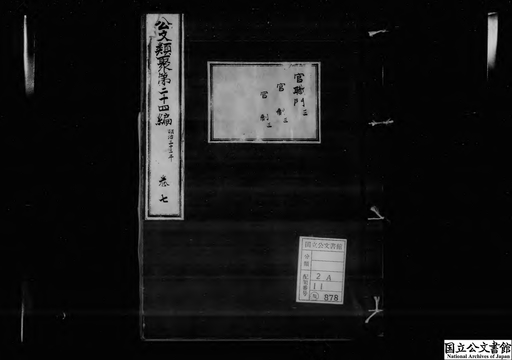 公文類聚第二十四編
明治三十三年
巻七
官職門三
官制三
官制三
国立公文書館
分類
配架番号
2A
11
878
国立公文書館
National Archives of Japan